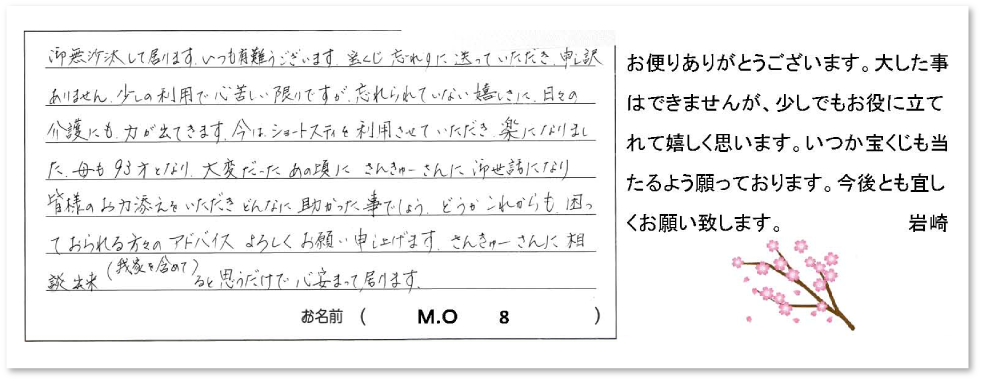 御無沙汰して居ります。いつも有難うございます。宝くじ忘れずに送っていただき、申し訳
ありません。少しの利用で心苦しい限りですが、忘れられていない嬉しさに、日々の
介護にも、力が出てきます。今は、ショートスティを利用させていただき、楽になりまし
た。母も93才となり、大変だったあの頃にさんきゅーさんに御世話になり
皆様のお力添えをいただきどんなに助かった事でしょう。どうかこれからも、困っ
ておられる方々のアドバイスよろしくお願い申し上げます。さんきゅーさんに相
談出来(我家を含めて)ると思うだけで心安まって居ります。
お名前 ( M.O 8 )
お便りありがとうございます。大した事
はできませんが、少しでもお役に立て
れて嬉しく思います。いつか宝くじも当
たるよう願っております。今後とも宜し
くお願い致します。 岩崎